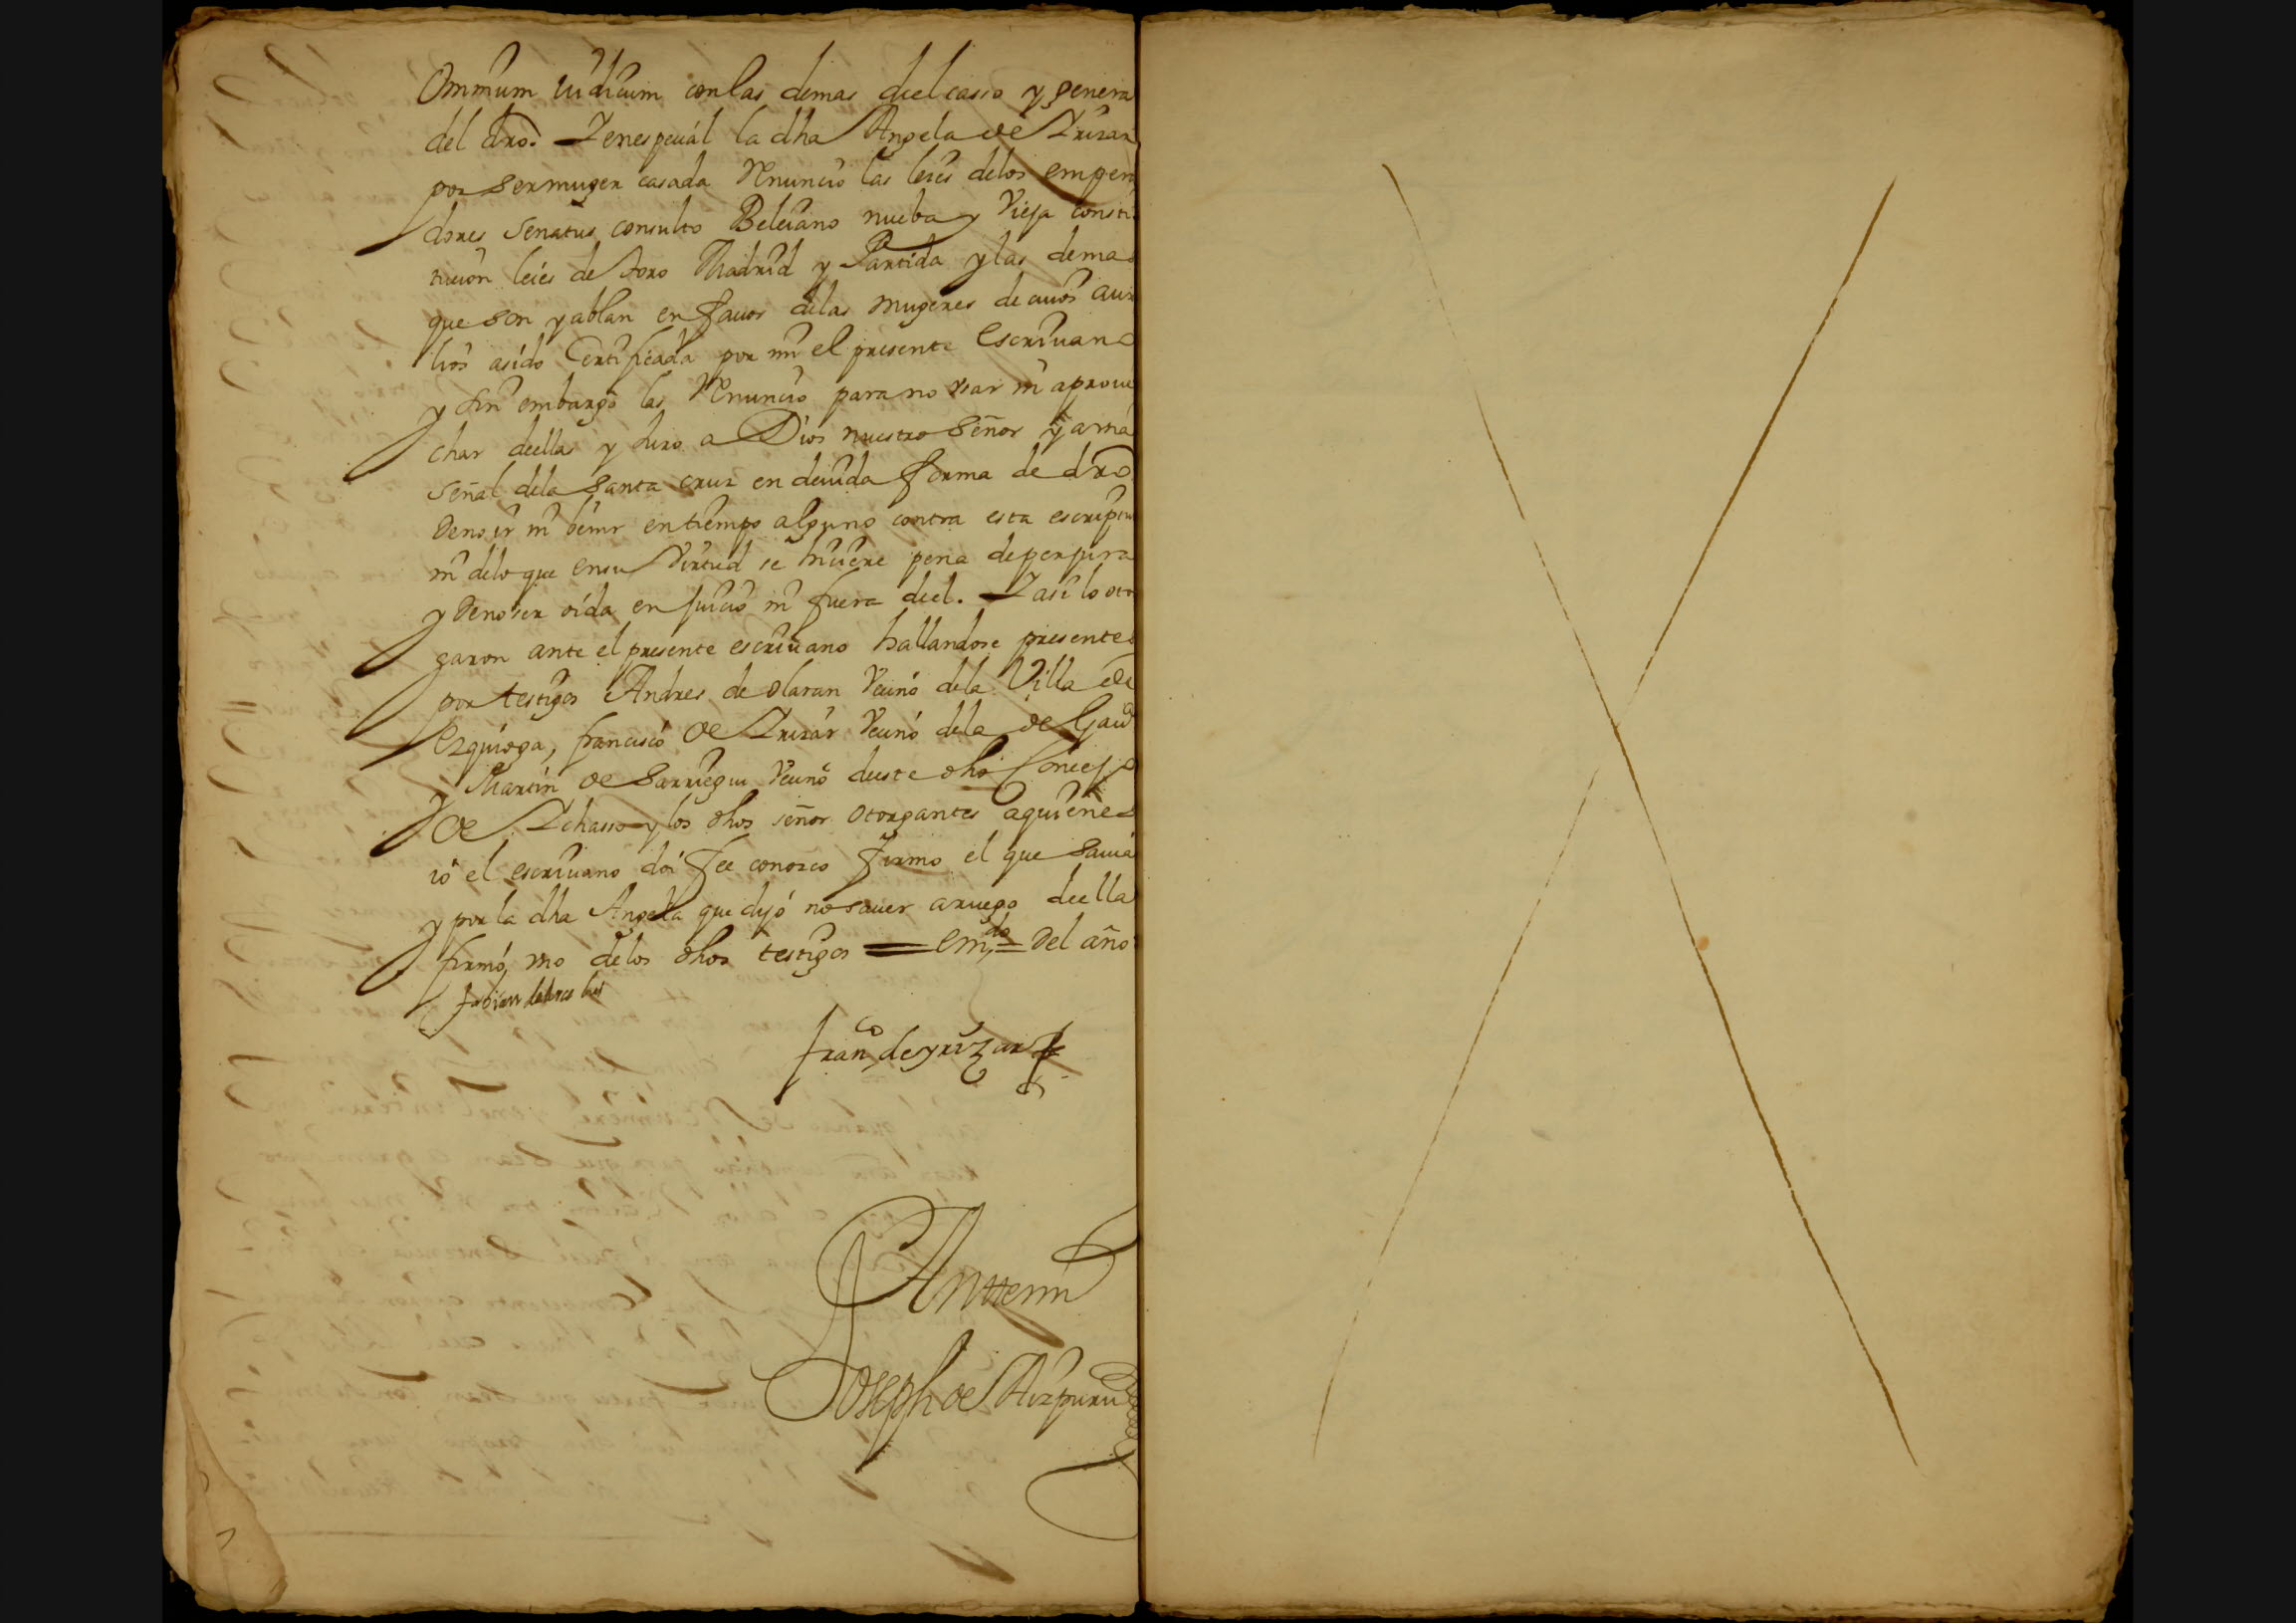 Ommium iudicum con las demas del casso y genera
del dro. Y en especial la dha Angela de Yrizar
por ser muger casada Renuncio las leies de los empera
dores Senatus consulto Beleiano nueba y Vieja consti
tucion leies de toro Madrid y Partida y las demas
que son y ablan en fauor de las mugeres de cuios auxi
lios a sido Certificada por mi el presente escriuano
y sin embargo las Renuncio para no usar ni aproue
char dellas y Juro a Dios nuestro Señor y a vna
señal de la Santa cruz en deuida forma de dro
de no ir ni benir en tiempo alguno contra esta escriptu
ni de lo que en su Virtud se hiciere pena de perjura
y de no ser oida en juicio ni fuera del. Y asi lo otor
garon ante el presente escriuano hallandose presentes
por testigos Andres de Olaran Vecino de la Villa de
Ezquioga, francisco de Yrizar Vecino de la de Gaui
y Martin de Sarriegui Vecino deste dho Concejo
de Ychasso y los dhos señor otorgantes a quienes
io el escriuano doi fee conozco firmo el que sauia
y por la dha Angela que dijó no sauer a ruego della
firmó vno de los dhos testigos = em.do = del año
franco de yrizar
Ante mi
Joseph de Aizpuru